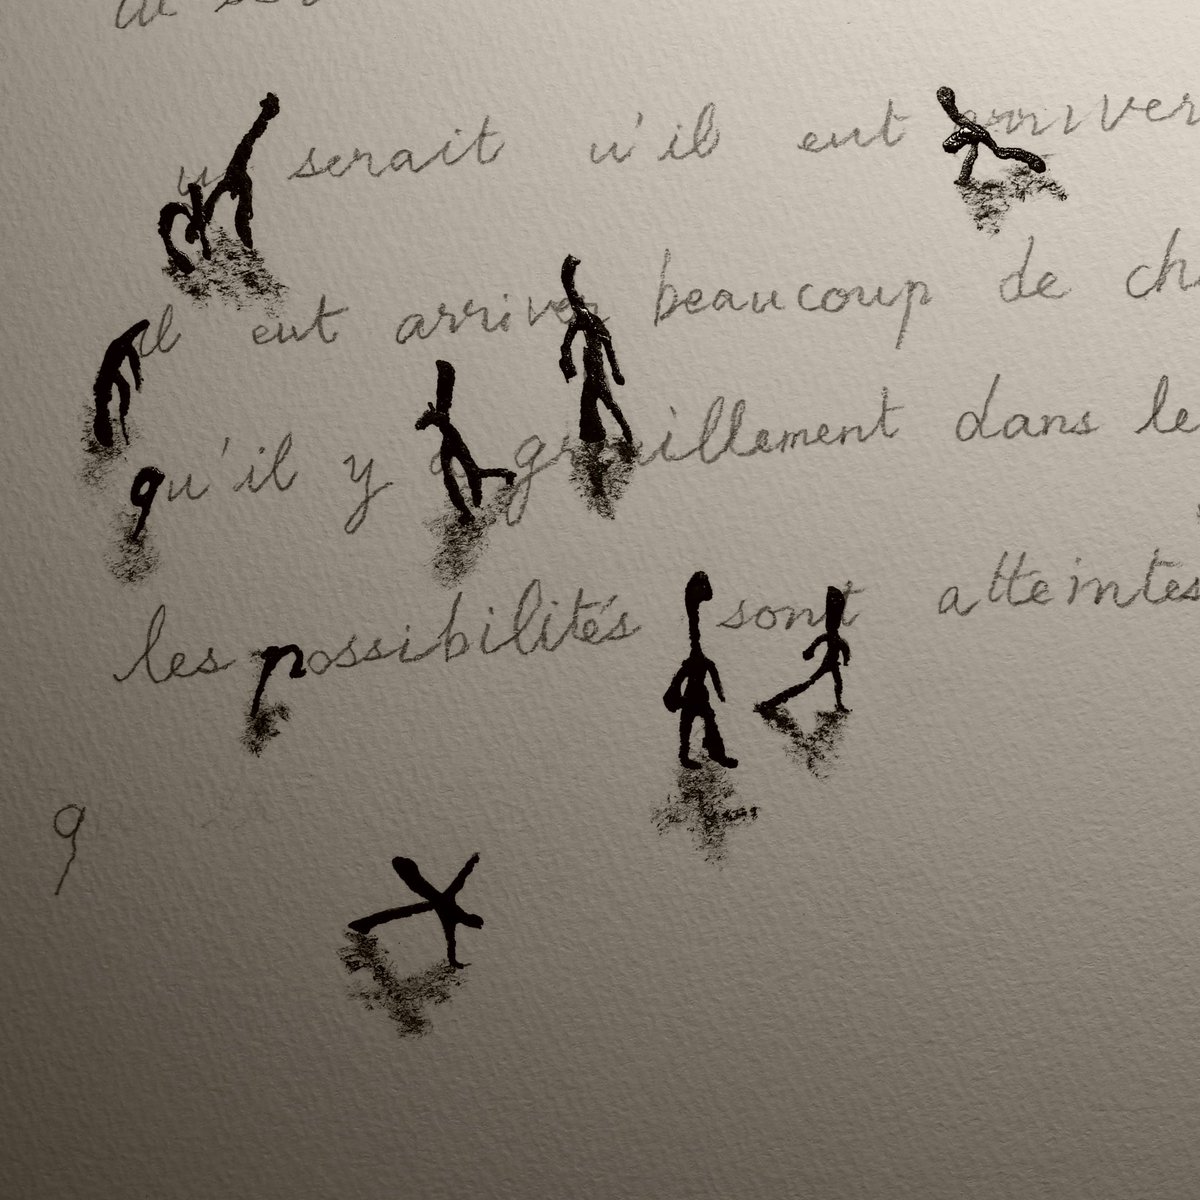 serait u'il eut arriver
il eut arriver beaucoup de ch
qu'il y a grouillement dans le
les possibilités sont atteintes
q